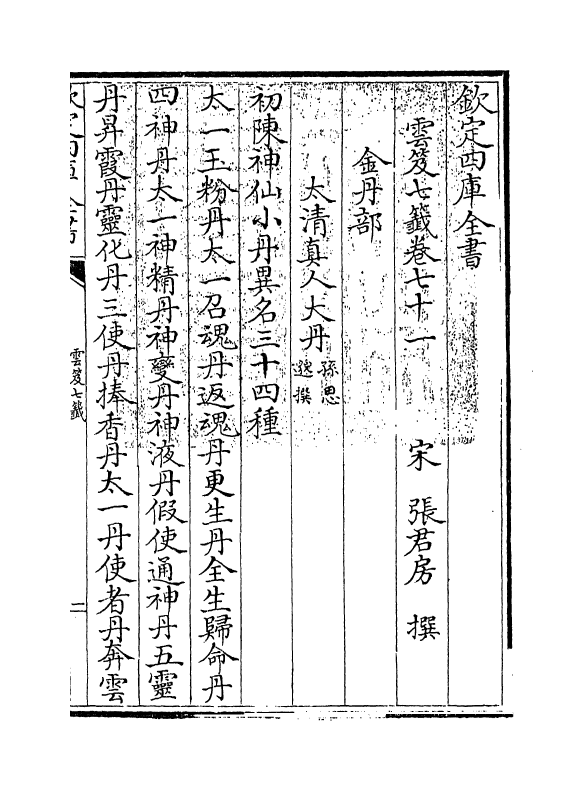 欽定四庫全書
雲笈七籤卷七十一　宋　張君房　撰
金丹部
太清真人大丹孫思邈撰
初陳神仙小丹異名三十四種
太一玉粉丹太一召魂丹返魂丹更生丹全生歸命丹
四神丹太一神精丹神變丹神液丹假使通神丹五靈
丹昇霞丹靈化丹三使丹捧香丹太一丹使者丹奔雲
雲笈七籤